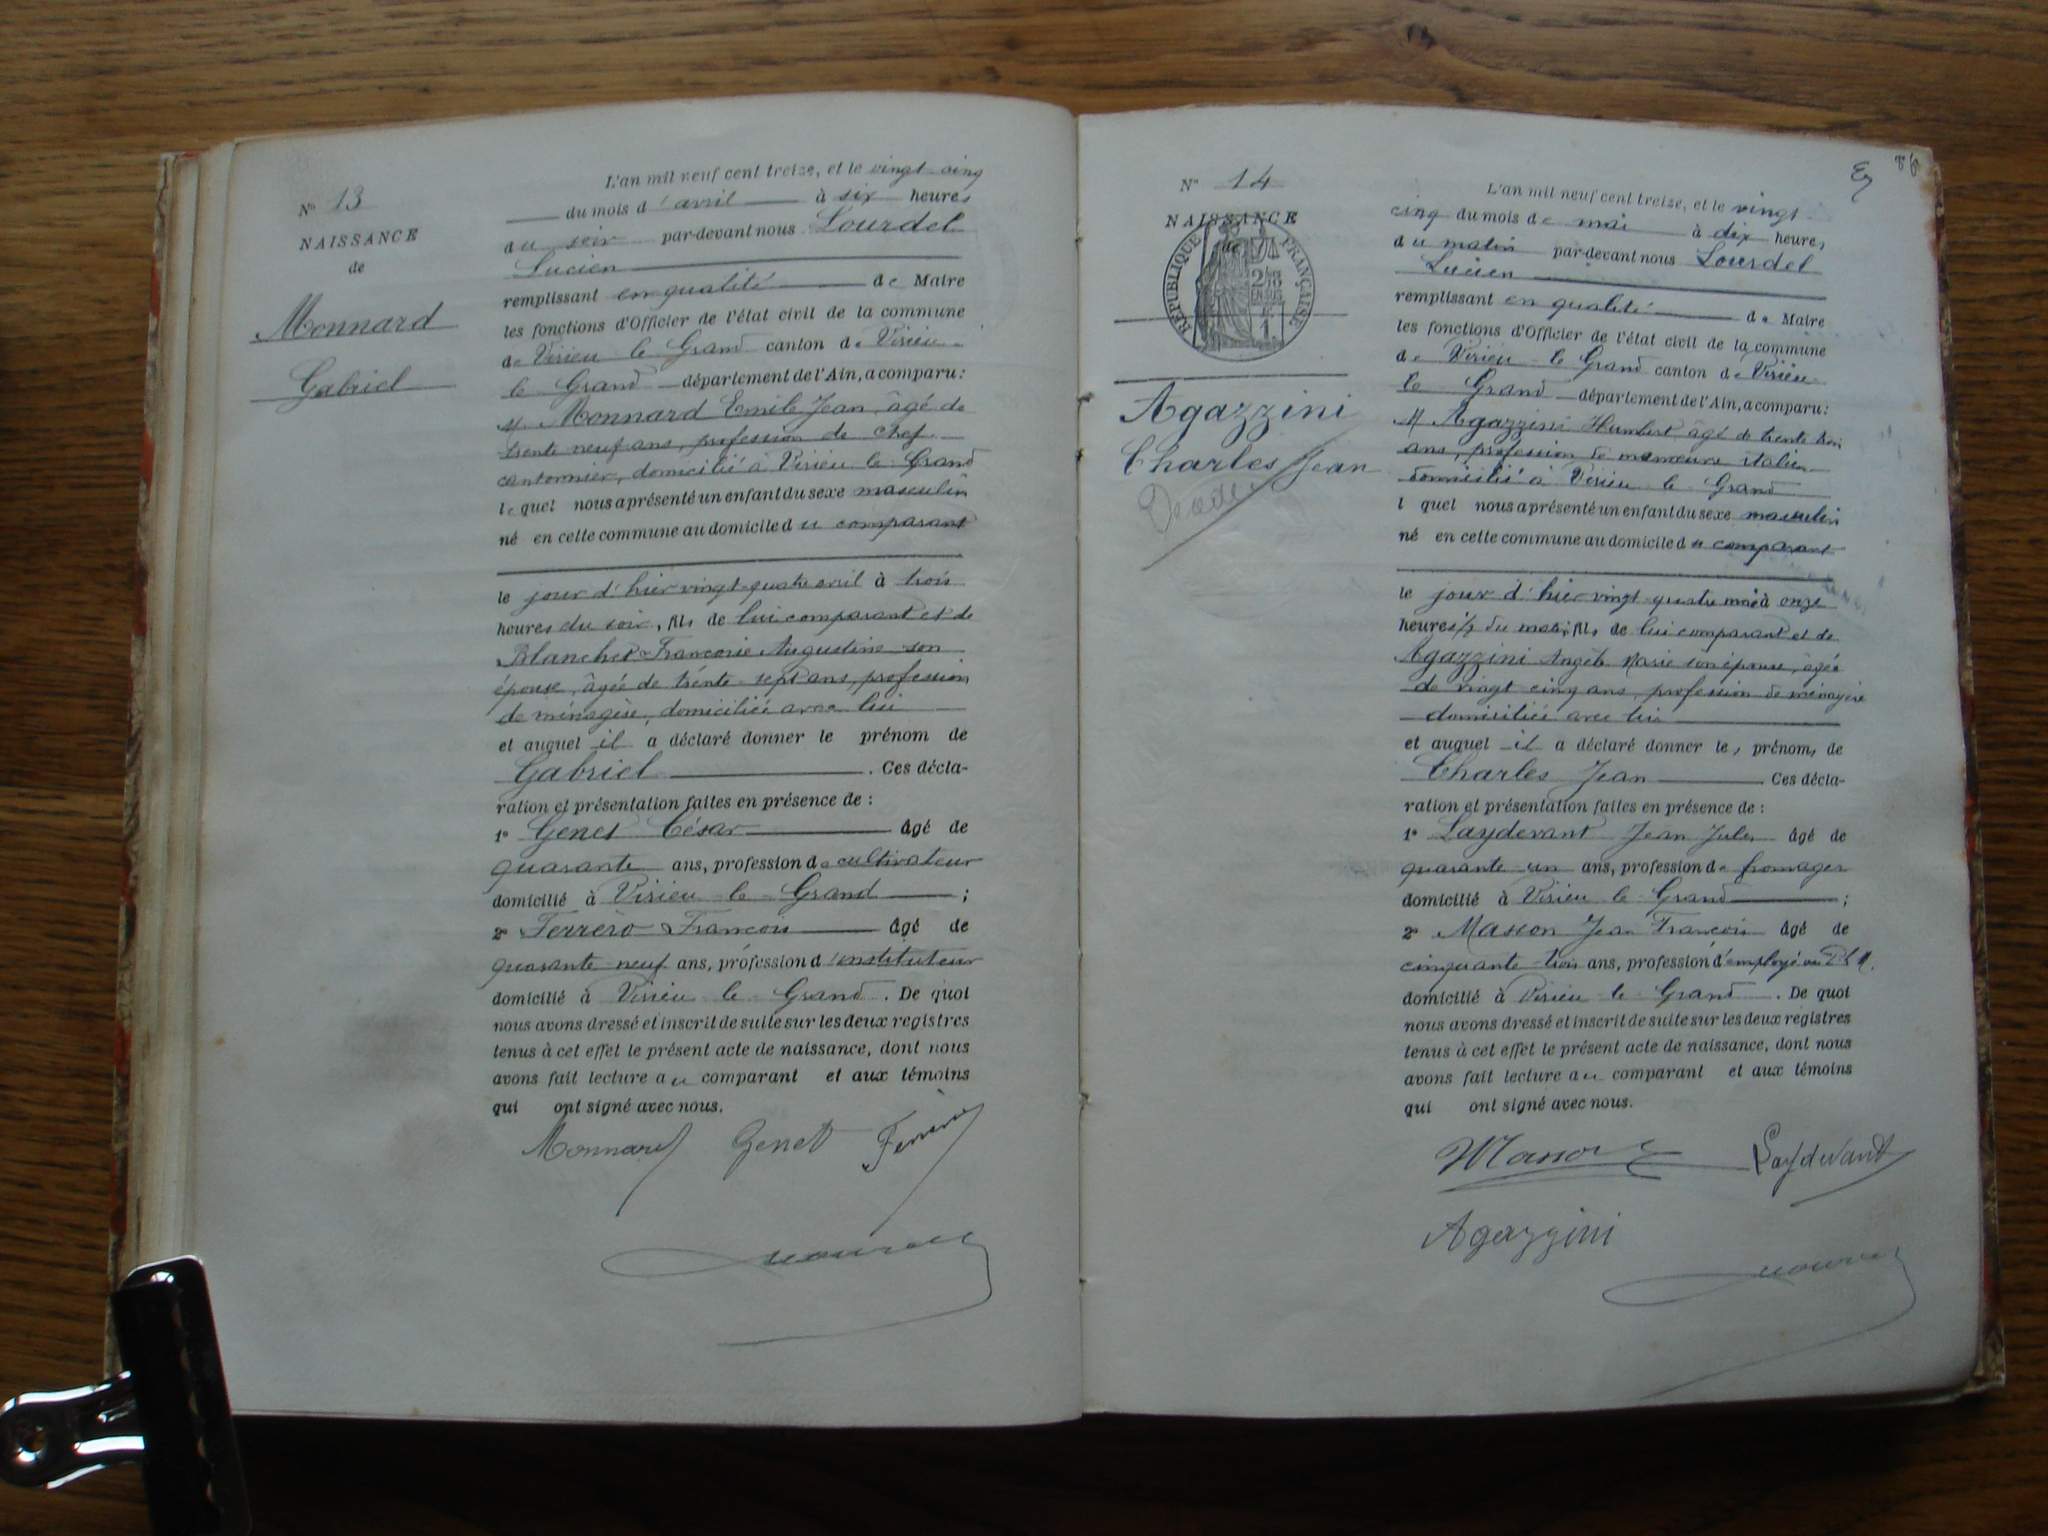 N° 13
NAISSANCE
de
Monnard
Gabriel
L'an mil neuf cent treize, et le vingt-cinq
du mois d'avril à six heures
du soir par-devant nous Lourdel
Lucien
remplissant en qualité de Maire
les fonctions d'Officier de l'état civil de la commune
de Virieu le Grand canton de Virieu
le Grand département de l'Ain, a comparu:
M. Monnard Emile Jean, âgé de
trente neuf ans, profession de chef
cantonnier, domicilié à Virieu le Grand
lequel nous a présenté un enfant du sexe masculin
né en cette commune au domicile du comparant
le jour d'hier vingt-quatre avril à trois
heures du soir, fils de lui comparant et de
Blanchet Françoise Augustine son
épouse, âgée de trente-sept ans, profession
de ménagère, domiciliée avec lui
et auquel il a déclaré donner le prénom de
Gabriel . Ces décla-
ration et présentation faites en présence de :
1° Genet César âgé de
quarante ans, profession de cultivateur
domicilié à Virieu le Grand ;
2° Ferrero François âgé de
quarante-neuf ans, profession d'instituteur
domicilié à Virieu le Grand . De quoi
nous avons dressé et inscrit de suite sur les deux registres
tenus à cet effet le présent acte de naissance, dont nous
avons fait lecture au comparant et aux témoins
qui ont signé avec nous.
Monnard Genet Ferrero
N° 14
NAISSANCE
de
RÉPUBLIQUE FRANÇAISE
Agazzini
Charles Jean
L'an mil neuf cent treize, et le vingt
cinq du mois de mai à dix heures
du matin par-devant nous Lourdel
Lucien
remplissant en qualité de Maire
les fonctions d'Officier de l'état civil de la commune
de Virieu le Grand canton de Virieu
le Grand département de l'Ain, a comparu:
M Agazzini Humbert âgé de trente trois
ans, profession de manoeuvre italien
domicilié à Virieu le Grand
l quel nous a présenté un enfant du sexe masculin
né en cette commune au domicile du comparant
le jour d'hier vingt-quatre mai à onze
heures 1/2 du matin, fils de lui comparant et de
Agazzini Angèle Marie son épouse, âgée
de vingt-cinq ans, profession de ménagère
domiciliée avec lui
et auquel il a déclaré donner les prénoms de
Charles Jean Ces décla-
ration et présentation faites en présence de :
1° Laydevant Jean Jules âgé de
quarante-un ans, profession de fromager
domicilié à Virieu le Grand ;
2° Masson Jean François âgé de
cinquante-trois ans, profession d'employé au P.L.M.
domicilié à Virieu le Grand . De quoi
nous avons dressé et inscrit de suite sur les deux registres
tenus à cet effet le présent acte de naissance, dont nous
avons fait lecture au comparant et aux témoins
qui ont signé avec nous.
Masson Laydevant
Agazzini